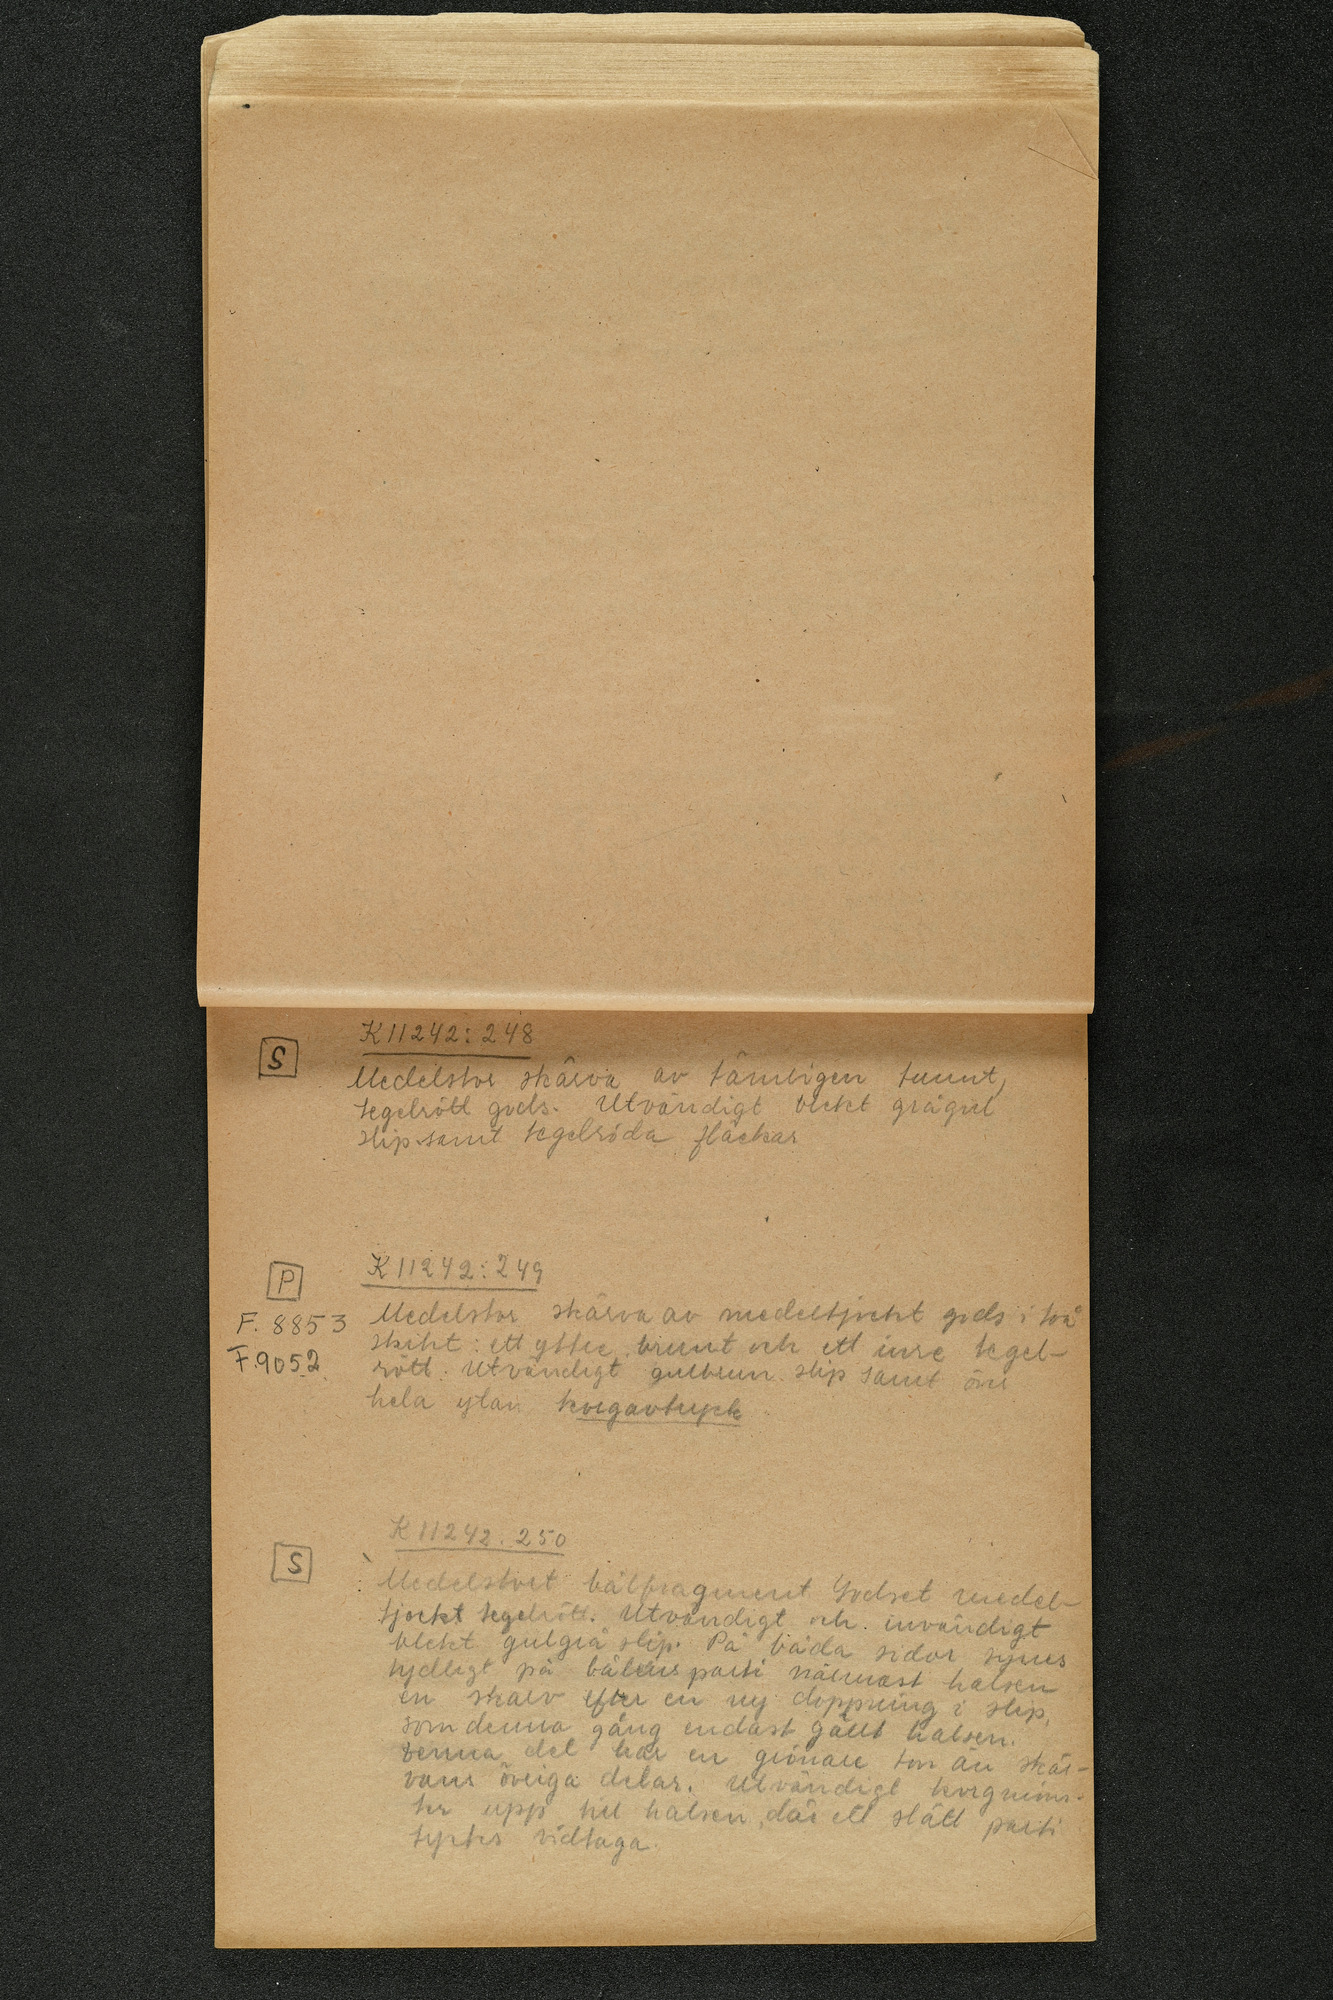 K11242:248
S
Medelstor skärva av tämligen tunnt,
tegelrött gods. Utvändigt blekt grågul
slip samt tegelröda fläckar
K11242:249
P
F. 8853
F.9052
Medelstor skärva av medeltjockt gods i två
skikt: ett yttre brunt och ett inre tegel-
rött. Utvändigt gulbrun slip samt över
hela ytan korgavtryck
K11242.250
S
Medelstort bålfragment Godset medel-
tjockt tegelrött. Utvändigt och invändigt
blekt gulgrå slip. På båda sidor synes
tydligt på bålens parti närmast halsen
en skarv efter en ny doppning i slip,
som denna gång endast gällt halsen.
Denna del har en grönare ton än skär-
vans övriga delar. Utvändigt korgmöns-
ter upp till halsen, där ett slätt parti
tyckes vidtaga.